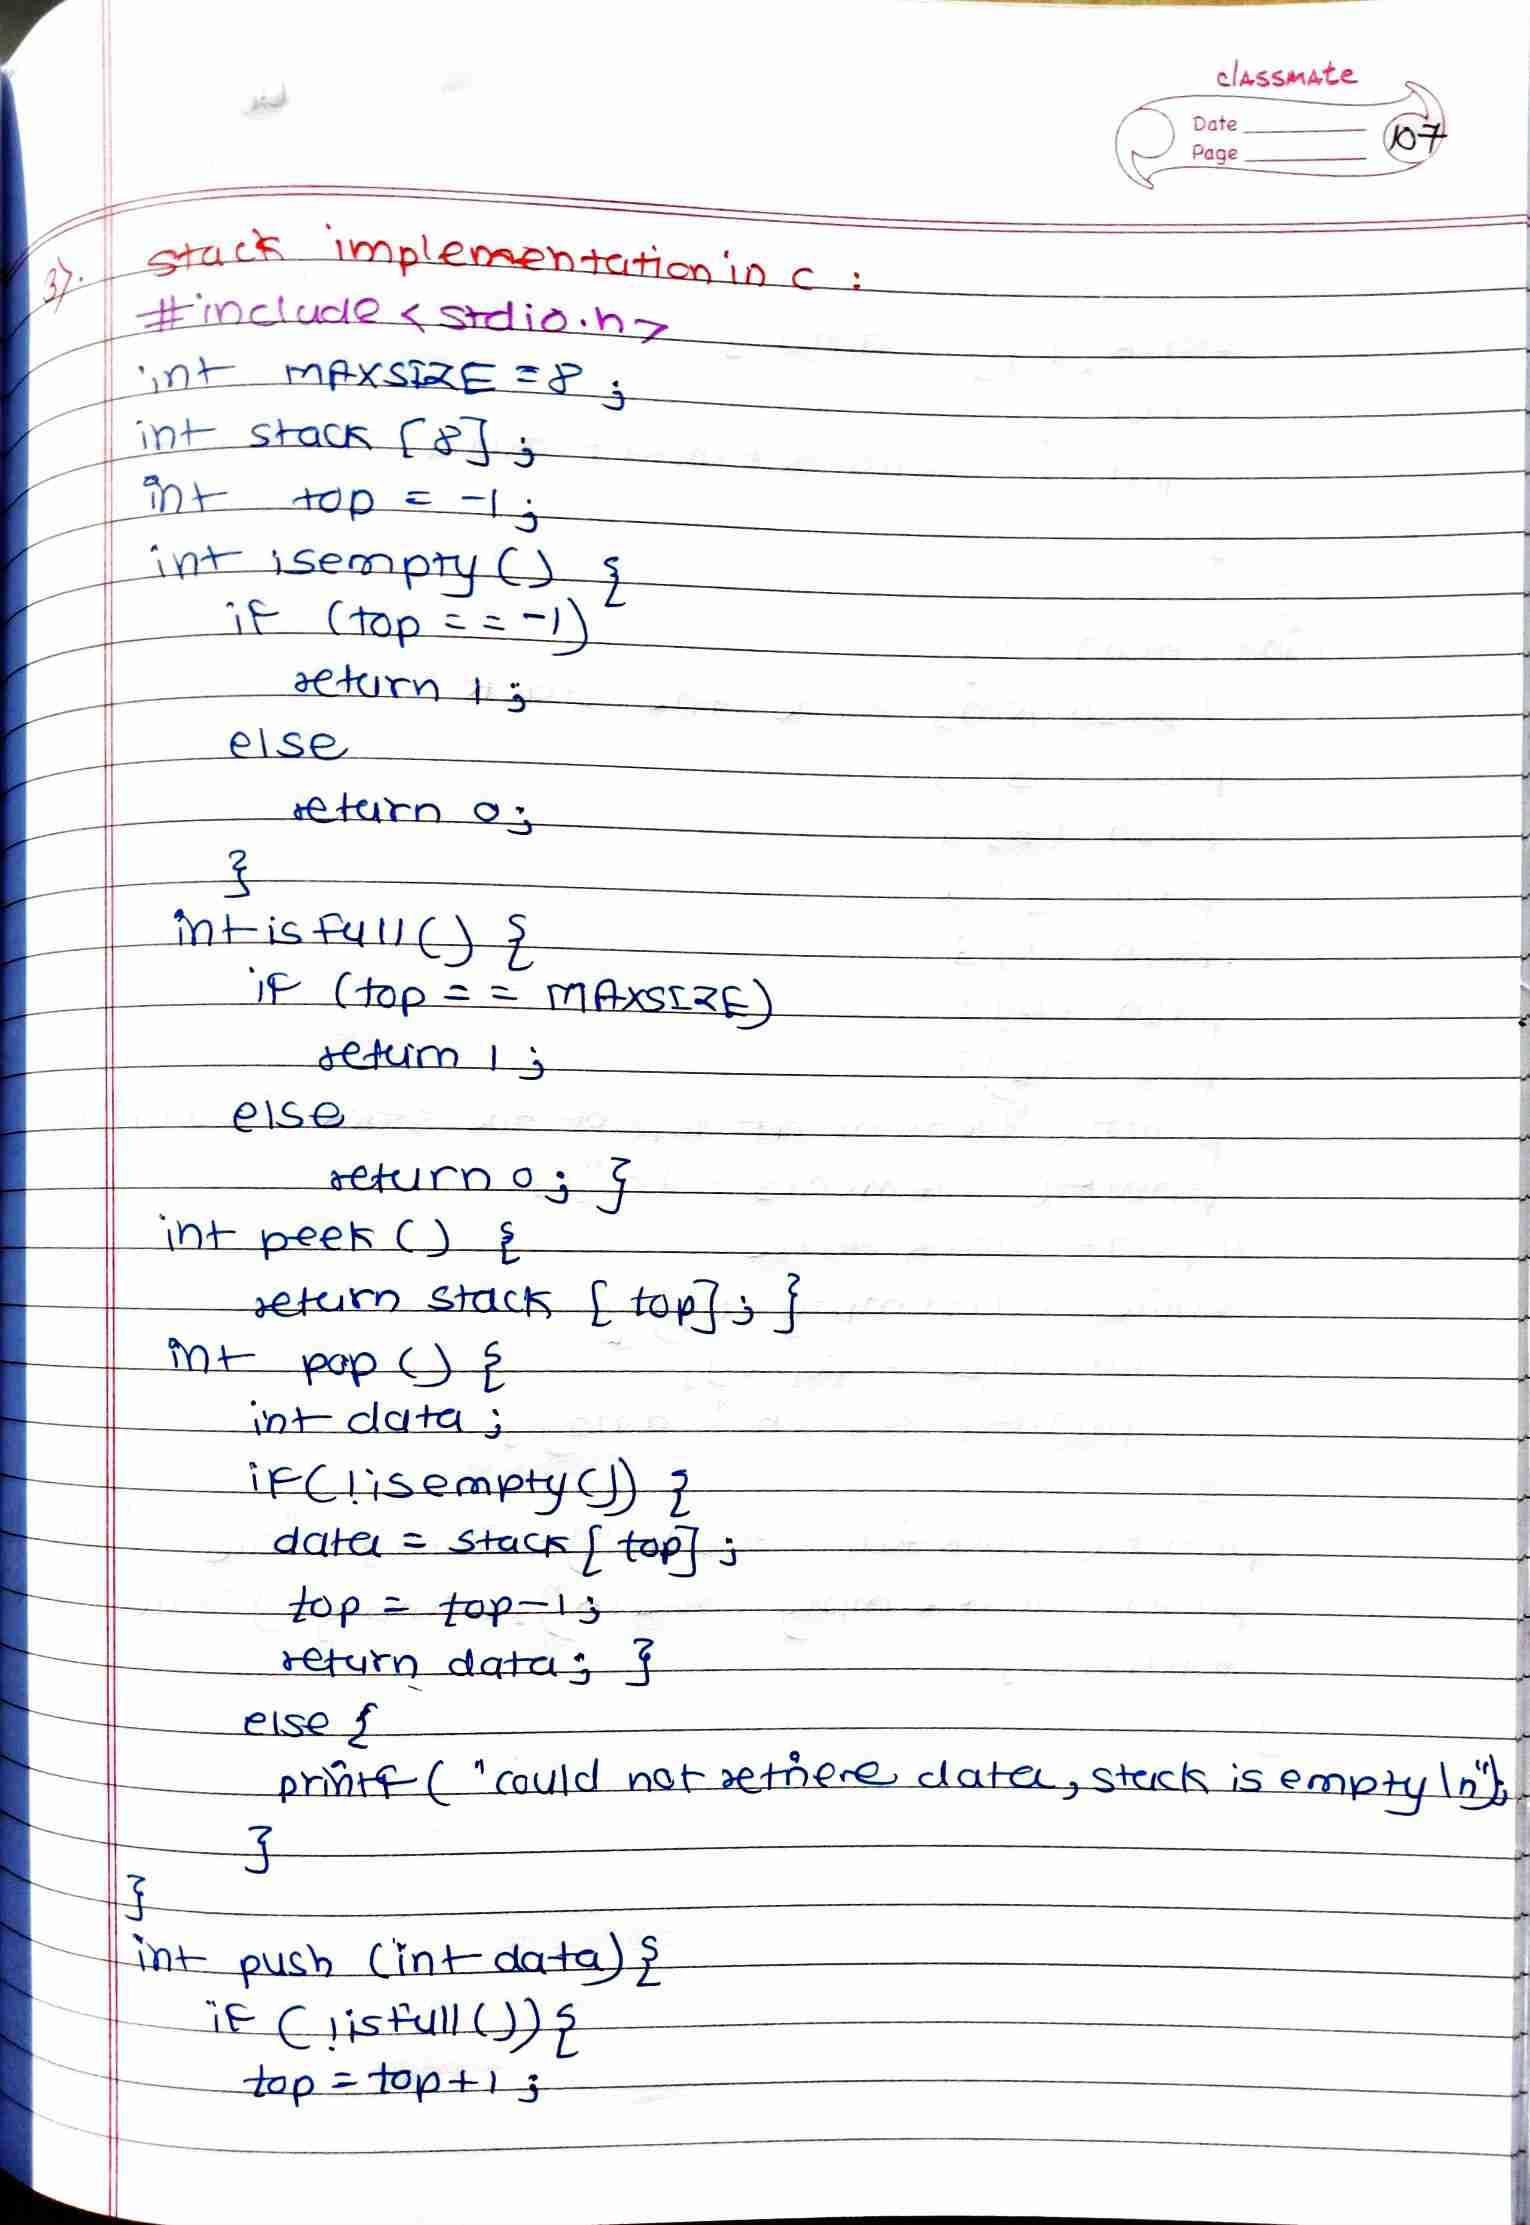 classmate
Date
Page
107
3). stack implementation in c :
#include <stdio.h>
int MAXSIZE = 8 ;
int stack [8] ;
int top = -1 ;
int isempty () {
if (top == -1)
return 1 ;
else
return 0 ;
}
int isfull () {
if (top == MAXSIZE)
return 1 ;
else
return 0 ; }
int peek () {
return stack [top] ; }
int pop () {
int data ;
if(!isempty()) {
data = stack [top] ;
top = top-1 ;
return data ; }
else {
printf ( "could not retrieve data, stack is empty \n");
}
}
int push (int data) {
if (!isfull()) {
top = top+1 ;